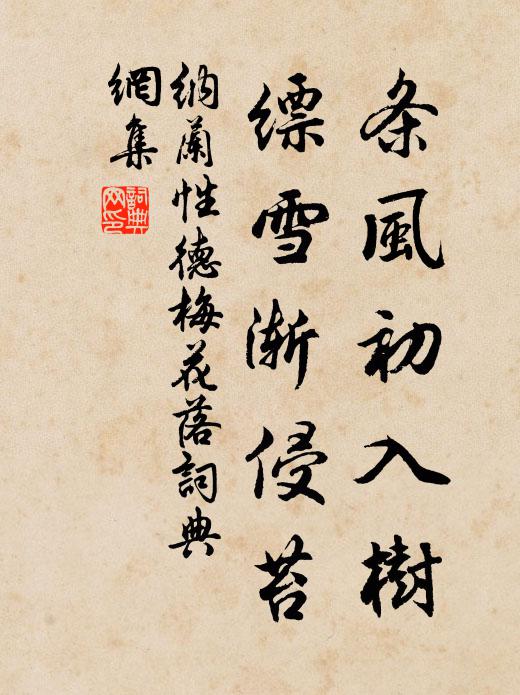 条風初入樹
縹雪漸侵苔
納蘭性德梅花落詞典
網集
詞典網印